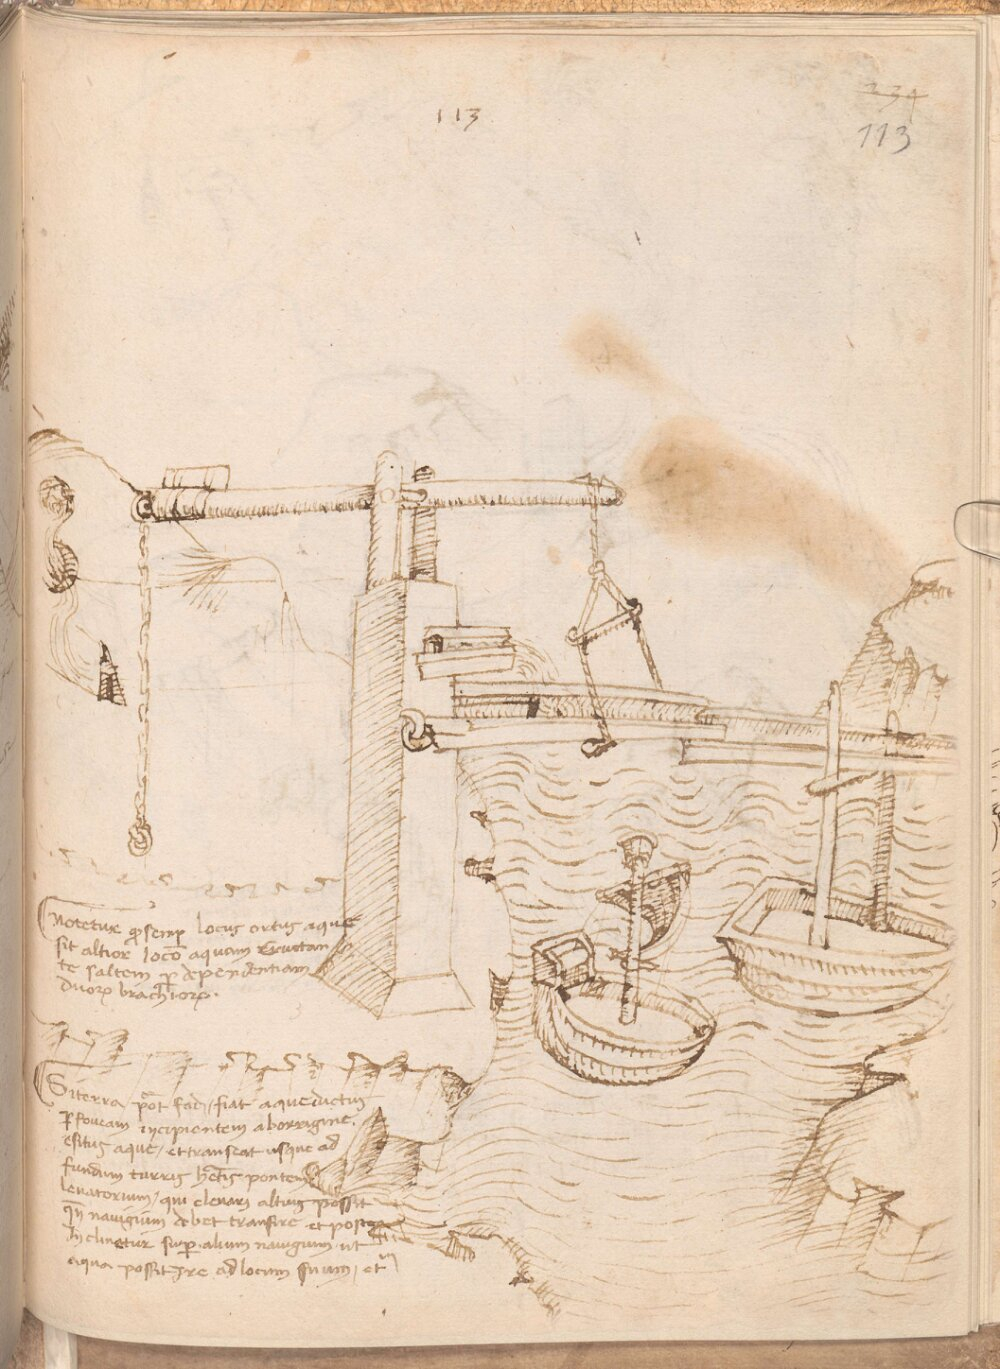 234
113
113
Notetur q semp locus ortus aque
sit altior loco aquam
te saltem p dependentiam
duorp brachiorp.
Si terra pot fiat aqueductus
p foveam incipientem ab origine
exitus aque, et transeat usque ad
fundum turris pontem
levatorium, qui elevari altius possit
qn navigium debet transire et postea
Inclinetur sup alium navigium ut
aqua possit Ire ad locum suum, et